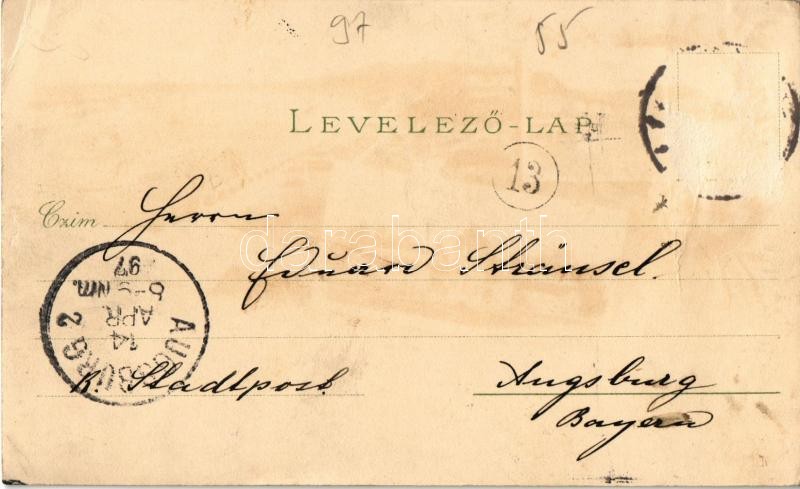 97 55
LEVELEZŐ-LAP
13
Czim Herrn
Eduard Stränsel.
AUGSBURG 2
14
APR
Nm.
97
K. Stadtpost Augsburg
Bayern
darabanth